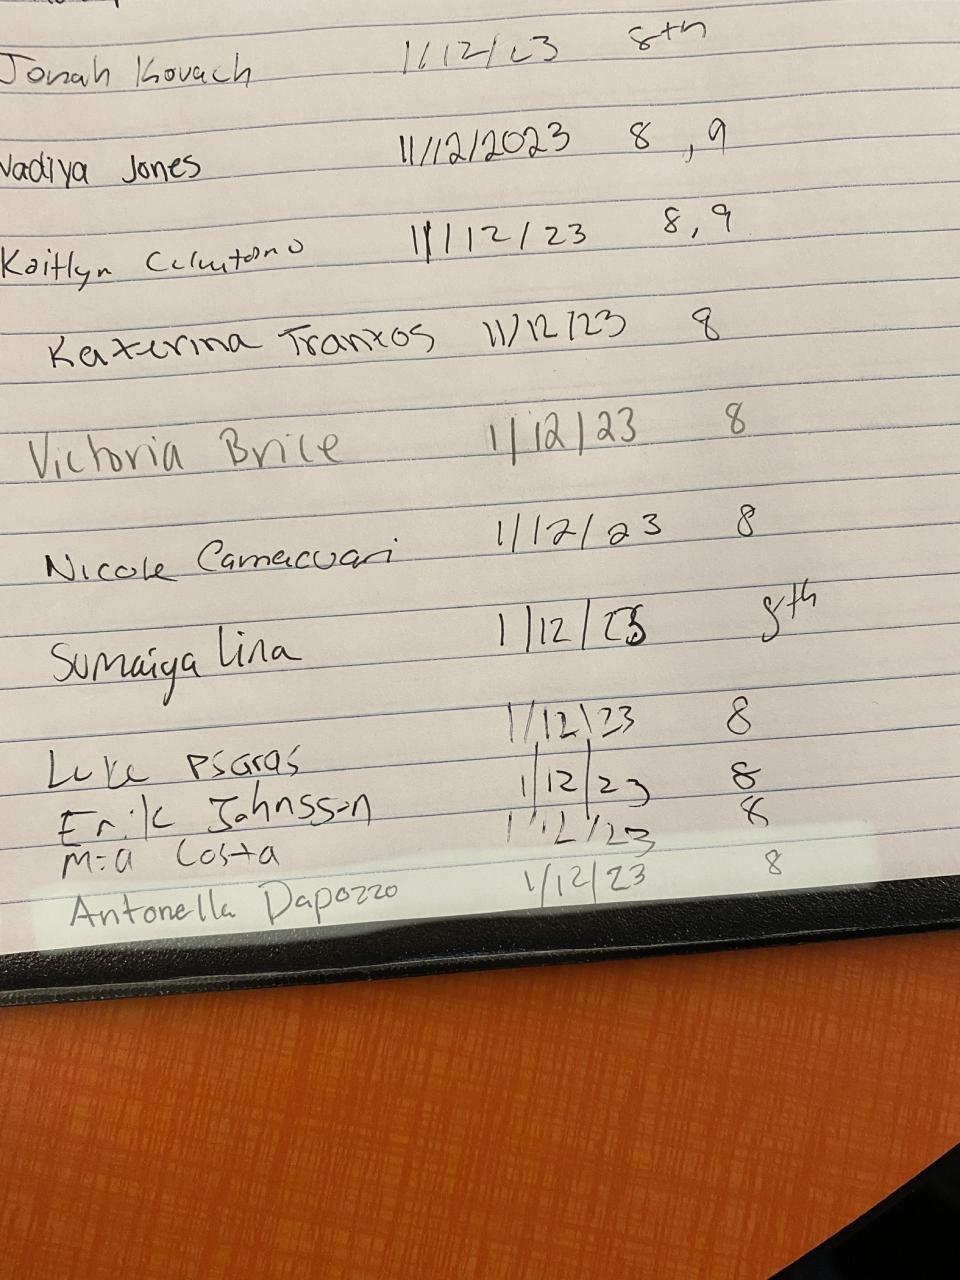 Jonah Kovach 1/12/23 8th
Nadiya Jones 11/12/2023 8, 9
Kaitlyn 11/12/23 8, 9
Katerina Trantos 11/12/23 8
Victoria Brice 1/12/23 8
Nicole Camacuari 1/12/23 8
Sumaiya Lina 1/12/23 8th
Luke Psaras 1/12/23 8
Erik Johnsson 1/12/23 8
Mia Costa 1/12/23 8
Antonella Dapozzo 1/12/23 8